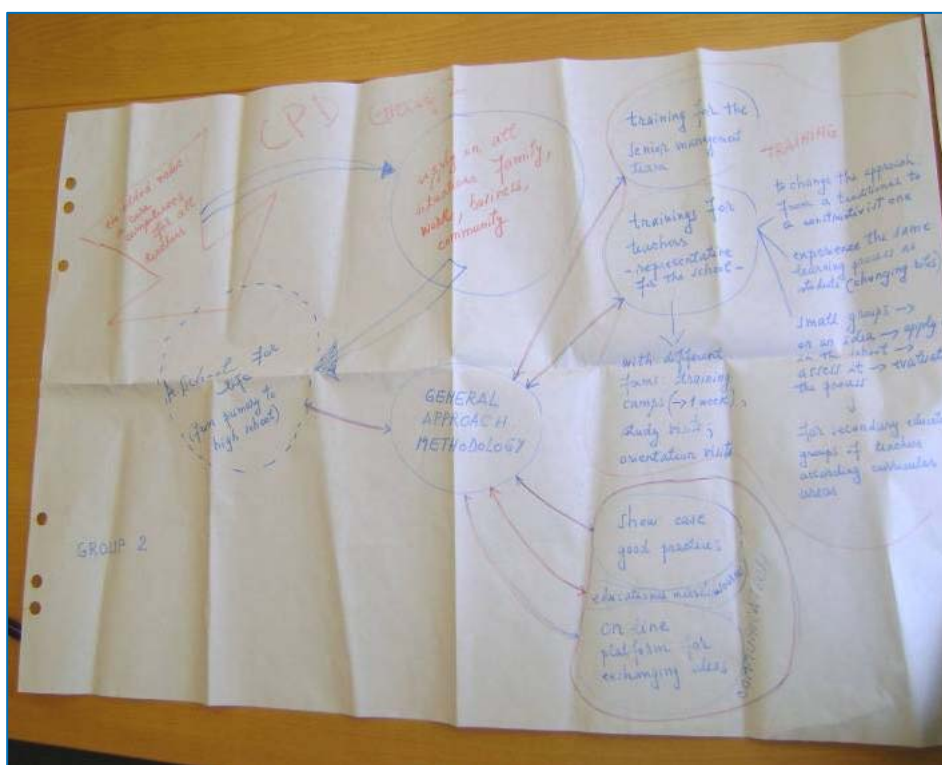 CPD
an added value:
a core
competences
for all
teachers
apply in all
situations family,
work, business,
community
A school for
life
(from primary to
high school)
GENERAL
APPROACH
METHODOLOGY
GROUP 2
training for the
senior management
team
trainings for
teachers
- representative
for the school -
with different
forms: training
camps (→ 1 week),
study visits,
orientation visits
TRAINING
to change the approach
from a traditional to
a constructivist one
experience the same
learning process as
students (changing roles)
small groups →
on an idea → apply
in the school →
assess it → evaluate
the process
for secondary educati
groups of teachers
according curricular
areas
show case
good practices
educational
on-line
platform for
exchanging ideas